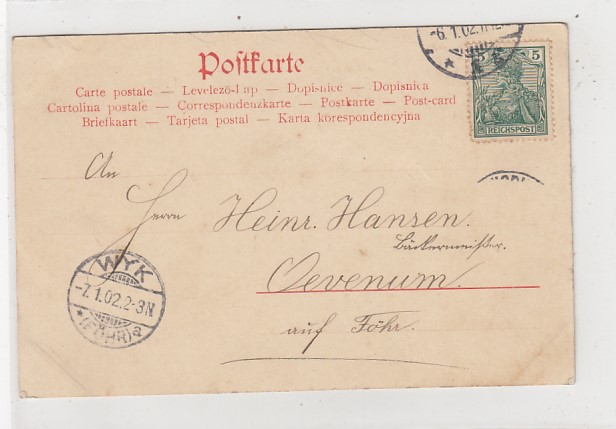 -6.1.02.11-12
5 5
REICHSPOST
Postkarte
Carte postale — Levelező-Lap — Dopisnice — Dopisnica
Cartolina postale — Correspondenzkarte — Postkarte — Post-card
Briefkaart — Tarjeta postal — Karta korespondencyjna
An
Herrn Heinr. Hansen.
Bäckermeister.
Oevenum.
auf Föhr.
WYK
-7.1.02.2-3N
*(FÖHR)a